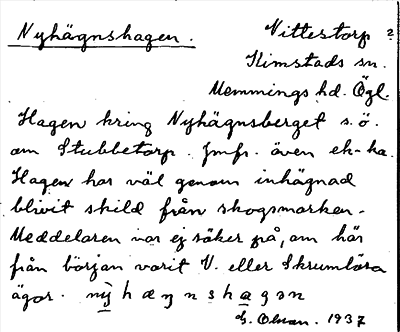 Nyhägnshagen. Vittestorp 2
Kimstads sn.
Memmings hd. Ögl.
Hagen kring Nyhägnsberget s.ö.
om Stubbetorp. Jmfr. även ek-ka.
Hagen har väl genom inhägnad
blivit skild från skogsmarken.
Meddelaren var ej säker på, om här
från början varit V. eller Skrumlösa
ägor. nỳhæŋnshagən
G. Olson. 1937